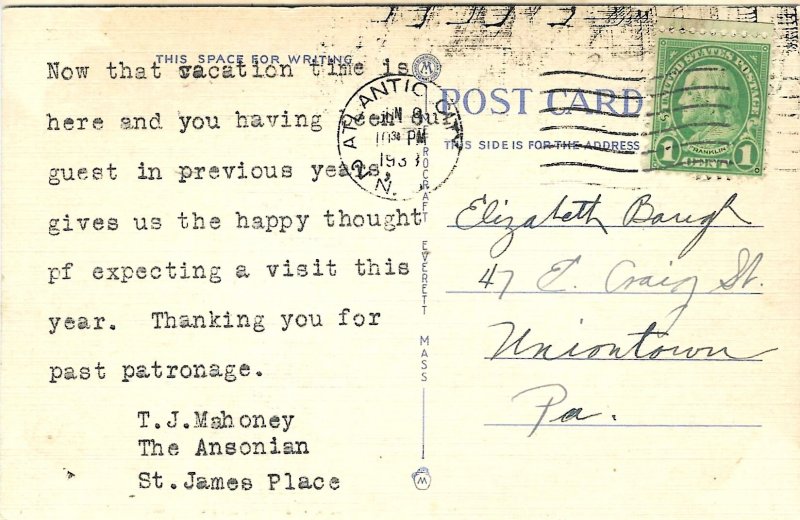 THIS SPACE FOR WRITING
Now that vacation time is
here and you having been our
guest in previous years,
gives us the happy thought
pf expecting a visit this
year. Thanking you for
past patronage.
T.J.Mahoney
The Ansonian
St.James Place
ATLANTIC CITY
10 30 PM
N.
POST CARD
THIS SIDE IS FOR THE ADDRESS
UNITED STATES POSTAGE
FRANKLIN
1 CENT 1
Elizabeth Baugh
47 E. Craig St.
Uniontown
Pa.
EVERETT MASS
W